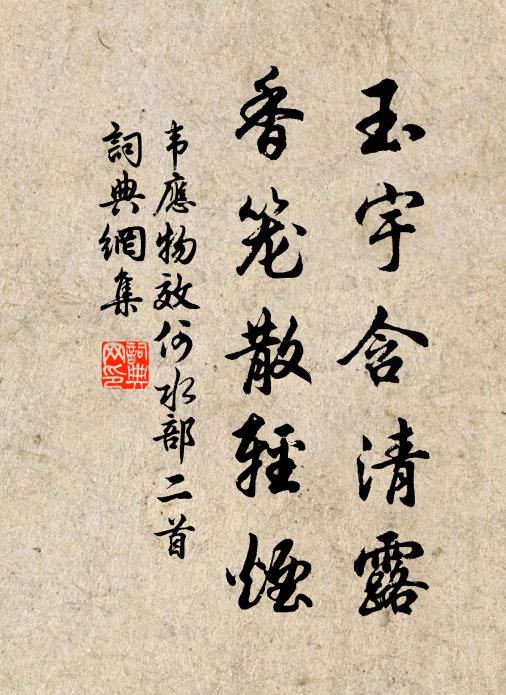 玉宇含清露
香笼散輕煙
韦應物效何水部二首
詞典網集
詞典網印